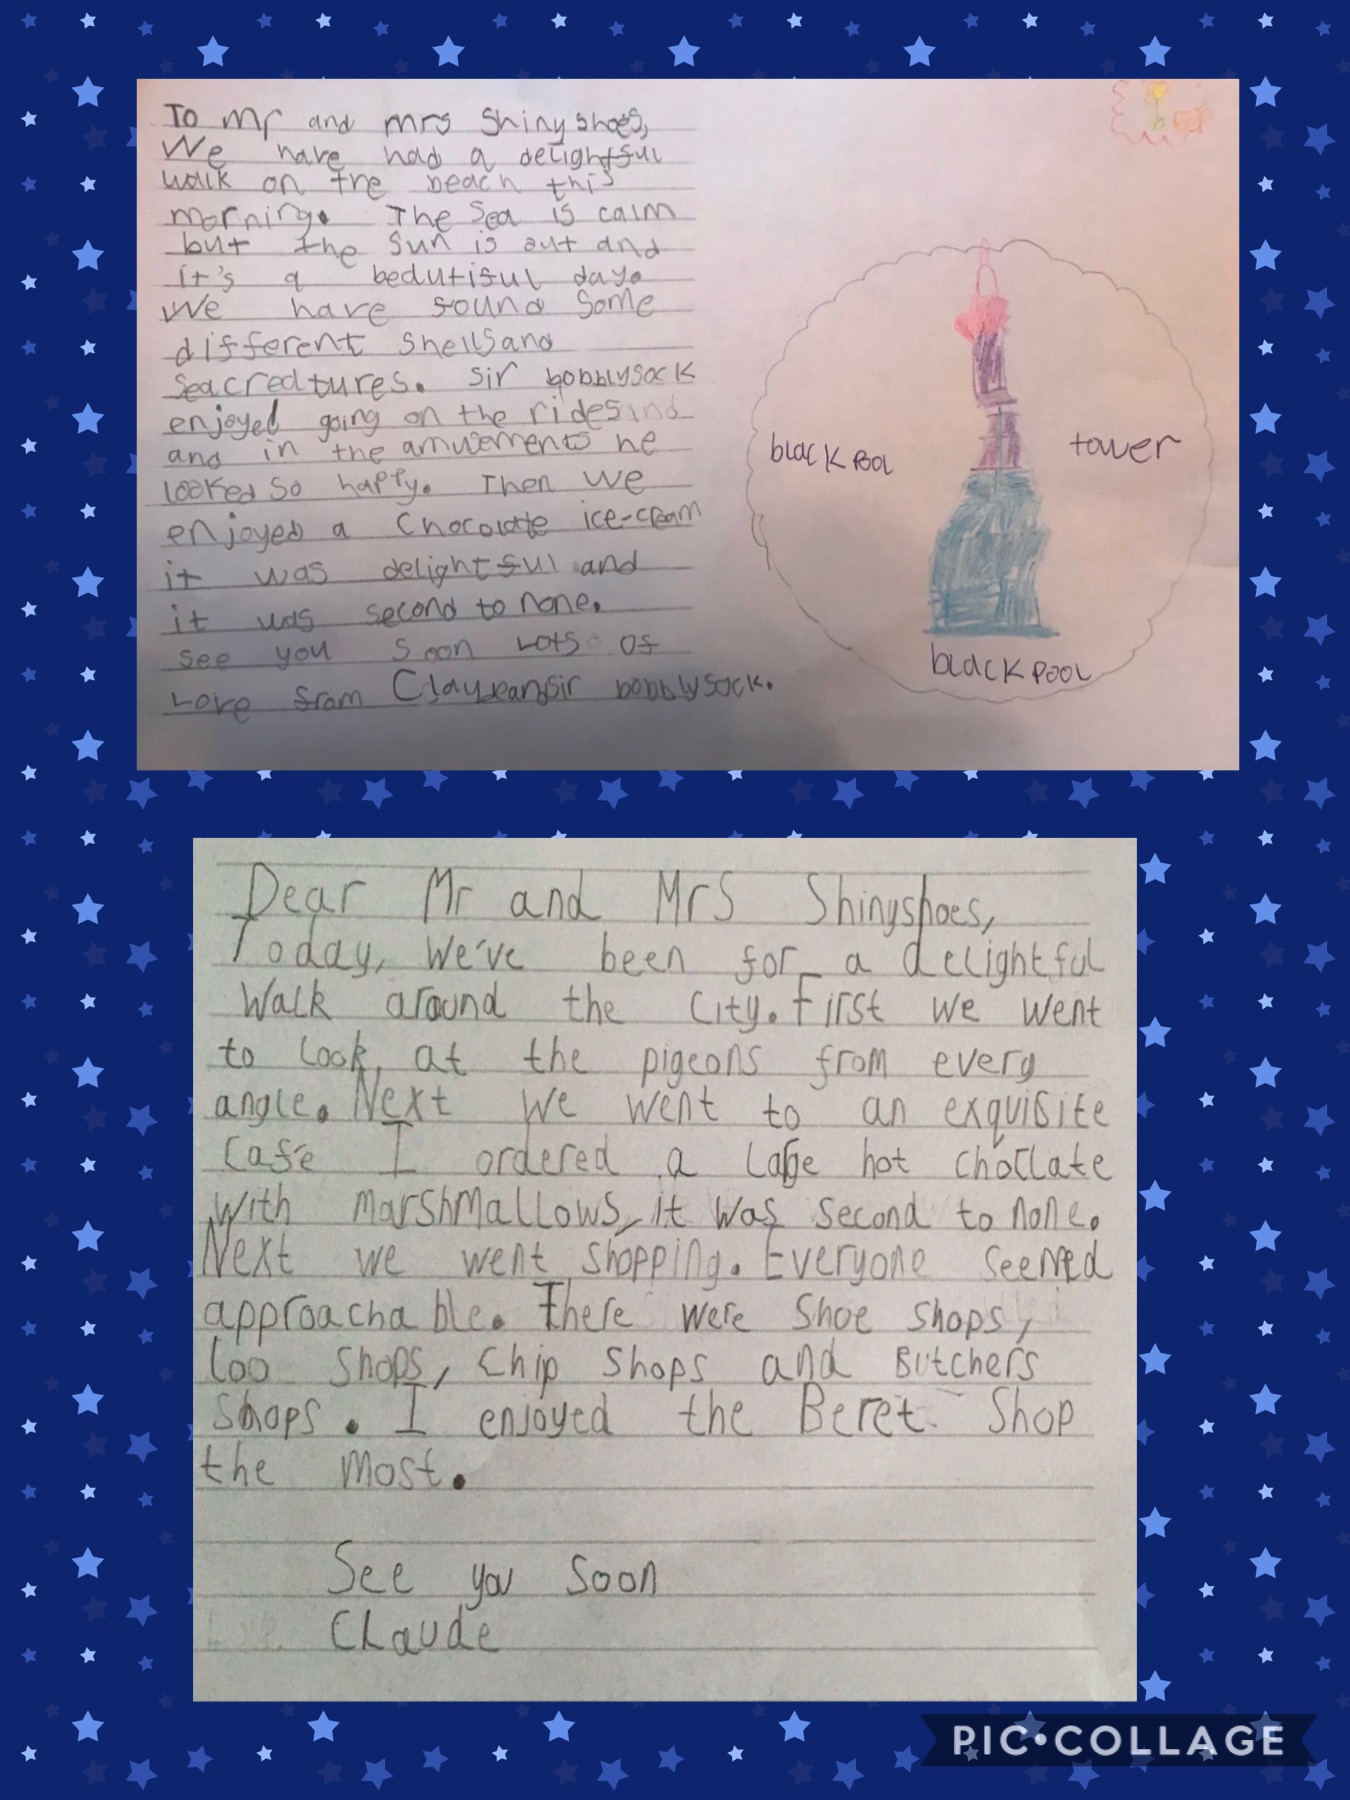 To Mr and mrs Shinyshoes,
We have had a delightful
walk on the beach this
morning. The Sea is calm
but the Sun is out and
it's a beautiful day.
We have found Some
different Shells and
Sea creatures. Sir bobblysock
enjoyed going on the rides and
and in the amusements he
looked so happy. Then we
enjoyed a Chocolate ice-cream
it was delightful and
it was second to none.
See you Soon Lots of
Love from Sir bobblysock.
black pool
tower
black pool
Dear Mr and Mrs Shinyshoes,
Today, we've been for a delightful
Walk around the City. First we went
to look at the pigeons from every
angle. Next we went to an exquisite
Cafe I ordered a large hot choclate
with marshmallows, it was second to none.
Next we went Shopping. Everyone seemed
approachable. There were Shoe Shops,
loo Shops, Chip Shops and Butchers
Shops. I enjoyed the Beret Shop
the most.
See you Soon
Claude
PIC•COLLAGE